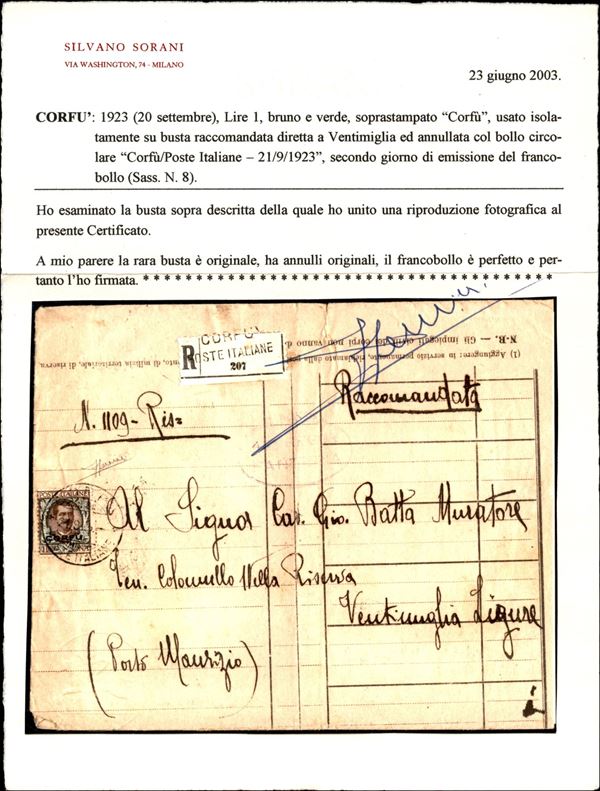 SILVANO SORANI
VIA WASHINGTON, 74 - MILANO
23 giugno 2003.
CORFU’: 1923 (20 settembre), Lire 1, bruno e verde, soprastampato “Corfù”, usato isola-
tamente su busta raccomandata diretta a Ventimiglia ed annullata col bollo circo-
lare “Corfù/Poste Italiane – 21/9/1923”, secondo giorno di emissione del franco-
bollo (Sass. N. 8).
Ho esaminato la busta sopra descritta della quale ho unito una riproduzione fotografica al
presente Certificato.
A mio parere la rara busta è originale, ha annulli originali, il francobollo è perfetto e per-
tanto l’ho firmata. * * * * * * * * * * * * * * * * * * * * * * * * * * * * * * * * * * * * * * * *
N.B. — Gli impiegati civili dei corpi non vanno
(1) Aggiungere: in servizio permanente, richiamato,
di milizia territoriale, di riserva.
R
CORFU
STE ITALIANE
207
Raccomandata
N. 1109 - Ris
POSTE ITALIANE
CORFÙ
E ITALIANE
Al Signor Cav. Gio. Batta Muratore
Ten. Colonnello della Riserva
Ventimiglia Ligure
(Porto Maurizio)